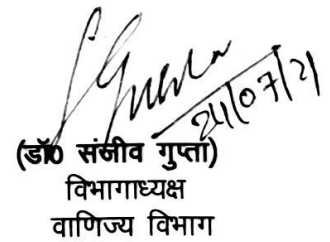 S Gupta
24/07/21
(डॉ0 संजीव गुप्ता)
विभागाध्यक्ष
वाणिज्य विभाग